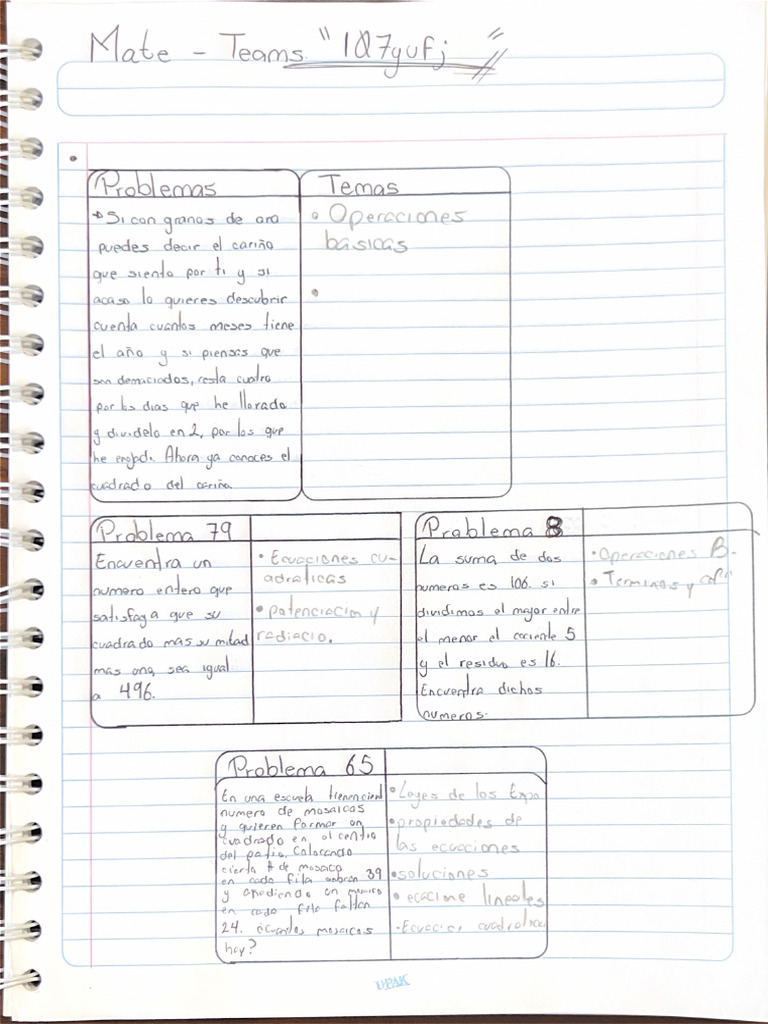 Mate - Teams "1Q7yufj"
Problemas
Si con granos de oro
puedes decir el cariño
que siento por ti y si
acaso lo quieres descubrir
cuenta cuantos meses tiene
el año y si piensas que
son demaciados, resta cuatro
por los dias que he llorado
y dividelo en 2, por los que
he enojad. Ahora ya conoces el
cuadrado del cariño
Temas
• Operaciones
basicas
•
Problema 79
Encuentra un
numero entero que
satisfaga que su
cuadrado mas su mitad
mas uno, sea igual
a 496.
• Ecuaciones cu-
adraticas
• potenciacion y
radiacio.
Problema 8
La suma de dos
numeros es 106. si
dividimos el mayor entre
el menor el cociente 5
y el residuo es 16.
Encuentra dichos
numeros.
• Operaciones B-
• Terminos y
Problema 65
En una escuela tienen cierd
numero de mosaicos
y quieren formar un
cuadrado en el centro
del patio. Colocando
cierta # de mosaico
en cada fila sobran 39
y añadiendo un mosaico
en cada fila faltan
24. ¿cuantos mosaicos
hay?
• Leyes de los Expo
• propiedades de
las ecuaciones
• soluciones
• ecacione lineales
UPAK